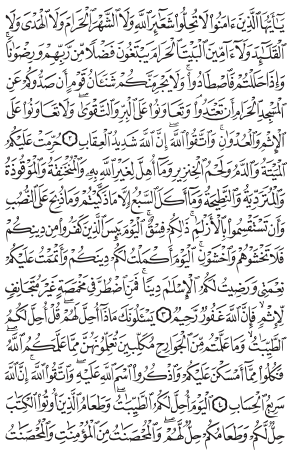 يَٰٓأَيُّهَا ٱلَّذِينَ ءَامَنُوا۟ لَا تُحِلُّوا۟ شَعَٰٓئِرَ ٱللَّهِ وَلَا ٱلشَّهْرَ ٱلْحَرَامَ وَلَا ٱلْهَدْىَ وَلَا
ٱلْقَلَٰٓئِدَ وَلَآ ءَآمِّينَ ٱلْبَيْتَ ٱلْحَرَامَ يَبْتَغُونَ فَضْلًا مِّن رَّبِّهِمْ وَرِضْوَٰنًا ۚ
وَإِذَا حَلَلْتُمْ فَٱصْطَادُوا۟ ۚ وَلَا يَجْرِمَنَّكُمْ شَنَـَٔانُ قَوْمٍ أَن صَدُّوكُمْ عَنِ
ٱلْمَسْجِدِ ٱلْحَرَامِ أَن تَعْتَدُوا۟ ۘ وَتَعَاوَنُوا۟ عَلَى ٱلْبِرِّ وَٱلتَّقْوَىٰ ۖ وَلَا تَعَاوَنُوا۟ عَلَى
ٱلْإِثْمِ وَٱلْعُدْوَٰنِ ۚ وَٱتَّقُوا۟ ٱللَّهَ ۖ إِنَّ ٱللَّهَ شَدِيدُ ٱلْعِقَابِ ٢ حُرِّمَتْ عَلَيْكُمُ
ٱلْمَيْتَةُ وَٱلدَّمُ وَلَحْمُ ٱلْخِنزِيرِ وَمَآ أُهِلَّ لِغَيْرِ ٱللَّهِ بِهِۦ وَٱلْمُنْخَنِقَةُ وَٱلْمَوْقُوذَةُ
وَٱلْمُتَرَدِّيَةُ وَٱلنَّطِيحَةُ وَمَآ أَكَلَ ٱلسَّبُعُ إِلَّا مَا ذَكَّيْتُمْ وَمَا ذُبِحَ عَلَى ٱلنُّصُبِ
وَأَن تَسْتَقْسِمُوا۟ بِٱلْأَزْلَٰمِ ۚ ذَٰلِكُمْ فِسْقٌ ۗ ٱلْيَوْمَ يَئِسَ ٱلَّذِينَ كَفَرُوا۟ مِن دِينِكُمْ
فَلَا تَخْشَوْهُمْ وَٱخْشَوْنِ ۚ ٱلْيَوْمَ أَكْمَلْتُ لَكُمْ دِينَكُمْ وَأَتْمَمْتُ عَلَيْكُمْ
نِعْمَتِى وَرَضِيتُ لَكُمُ ٱلْإِسْلَٰمَ دِينًا ۚ فَمَنِ ٱضْطُرَّ فِى مَخْمَصَةٍ غَيْرَ مُتَجَانِفٍ
لِّإِثْمٍ ۙ فَإِنَّ ٱللَّهَ غَفُورٌ رَّحِيمٌ ٣ يَسْـَٔلُونَكَ مَاذَآ أُحِلَّ لَهُمْ ۖ قُلْ أُحِلَّ لَكُمُ
ٱلطَّيِّبَٰتُ ۙ وَمَا عَلَّمْتُم مِّنَ ٱلْجَوَارِحِ مُكَلِّبِينَ تُعَلِّمُونَهُنَّ مِمَّا عَلَّمَكُمُ ٱللَّهُ ۖ
فَكُلُوا۟ مِمَّآ أَمْسَكْنَ عَلَيْكُمْ وَٱذْكُرُوا۟ ٱسْمَ ٱللَّهِ عَلَيْهِ ۖ وَٱتَّقُوا۟ ٱللَّهَ ۚ إِنَّ ٱللَّهَ
سَرِيعُ ٱلْحِسَابِ ٤ ٱلْيَوْمَ أُحِلَّ لَكُمُ ٱلطَّيِّبَٰتُ ۖ وَطَعَامُ ٱلَّذِينَ أُوتُوا۟ ٱلْكِتَٰبَ
حِلٌّ لَّكُمْ وَطَعَامُكُمْ حِلٌّ لَّهُمْ ۖ وَٱلْمُحْصَنَٰتُ مِنَ ٱلْمُؤْمِنَٰتِ وَٱلْمُحْصَنَٰتُ